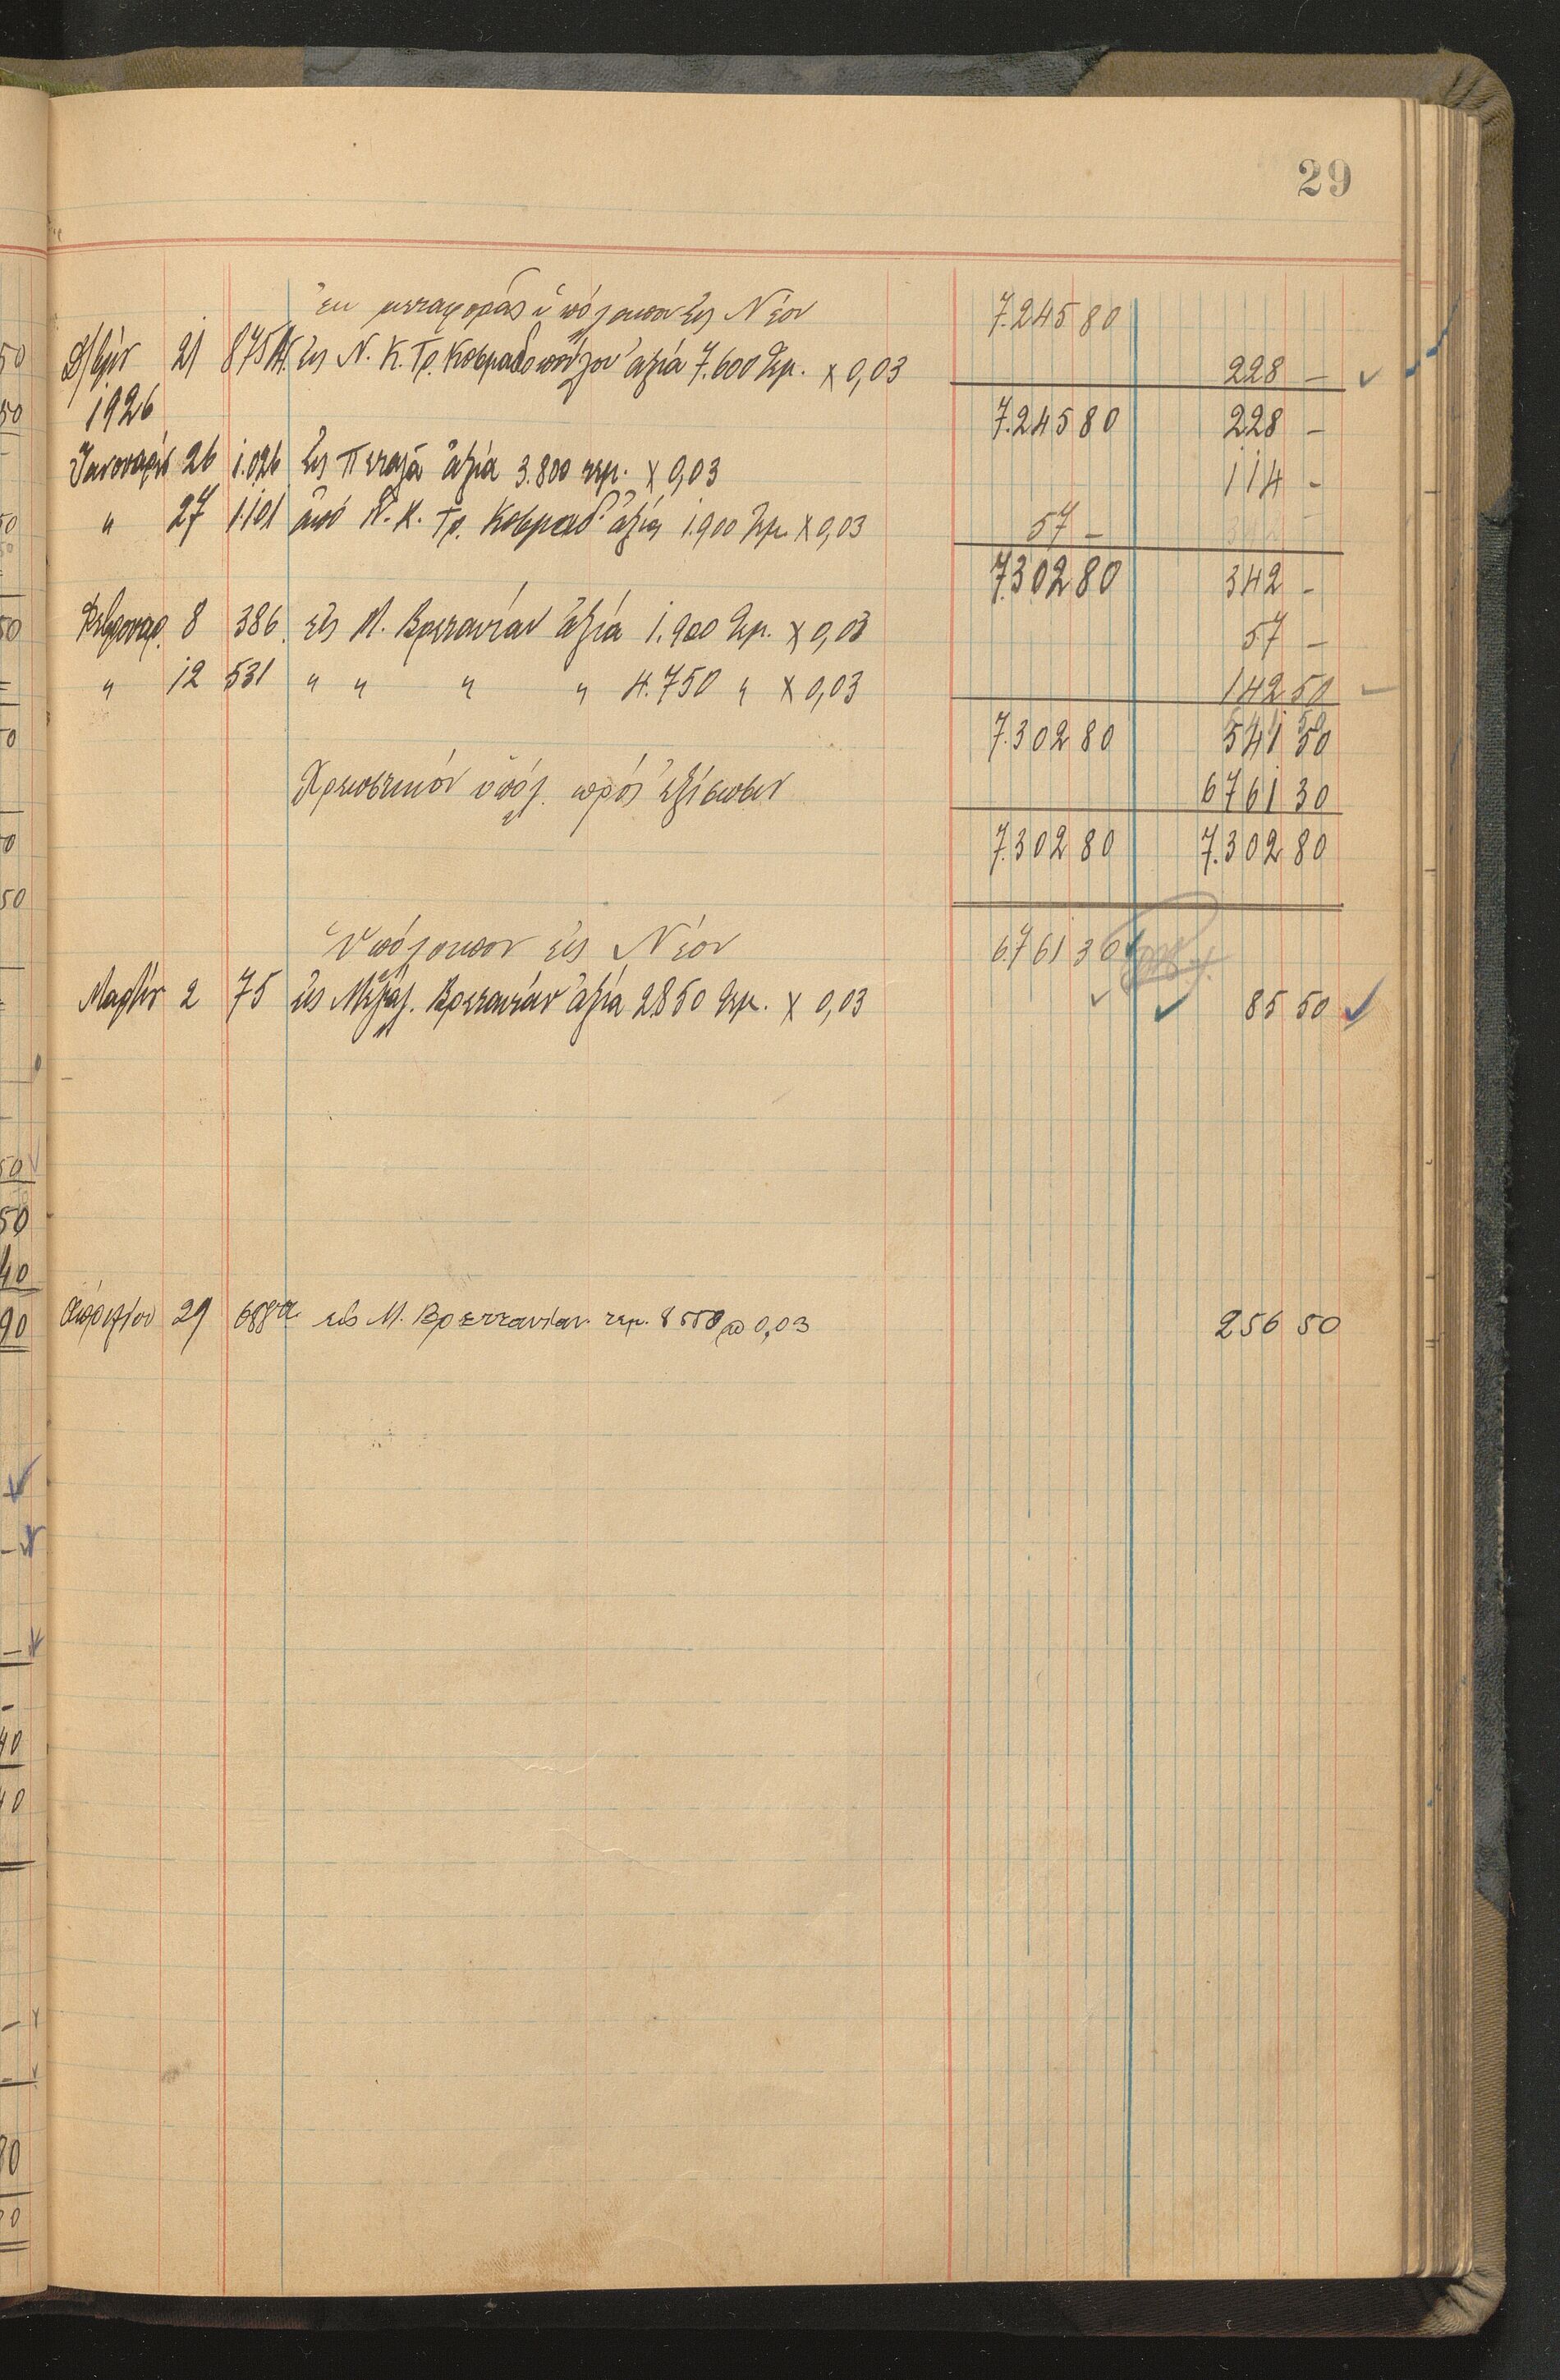 29
Ἐκ μεταφορᾶς ὑπόλοιπον εἰς Νέον 7.245 80
Δ/βρίου 21 875 Εἰς Ν. Κ. Τρ. Κοσμαδοπούλου ἀξία 7.600 τεμ. x 0,03 228 –
1926 7.245 80 228 –
Ἰανουαρίου 26 1.026 Εἰς ἀξία 3.800 τεμ. x 0,03 114 –
" 27 1.101 ἀπό Ν. Κ. Τρ. Κοσμαδ. ἀξία 1.900 τεμ. x 0,03 57 –
7.302 80 342 –
Φεβρουαρ. 8 386 εἰς Μ. Βρεταννίαν ἀξία 1.900 τεμ. x 0,03 57 –
" 12 531 " " " " 4.750 " x 0,03 142 50
7.302 80 541 50
Χρεωστικόν ὑπόλ. πρός ἐξίσωσιν 6761 30
7.302 80 7.302 80
Ὑπόλοιπον εἰς Νέον 6.761 30
Μαρτίου 2 75 Εἰς Μεγάλ. Βρεταννίαν ἀξία 2850 τεμ. x 0,03 85 50
Ἀπριλίου 29 688 εἰς Μ. Βρεττανίαν τεμ. 8550 @ 0,03 256 50